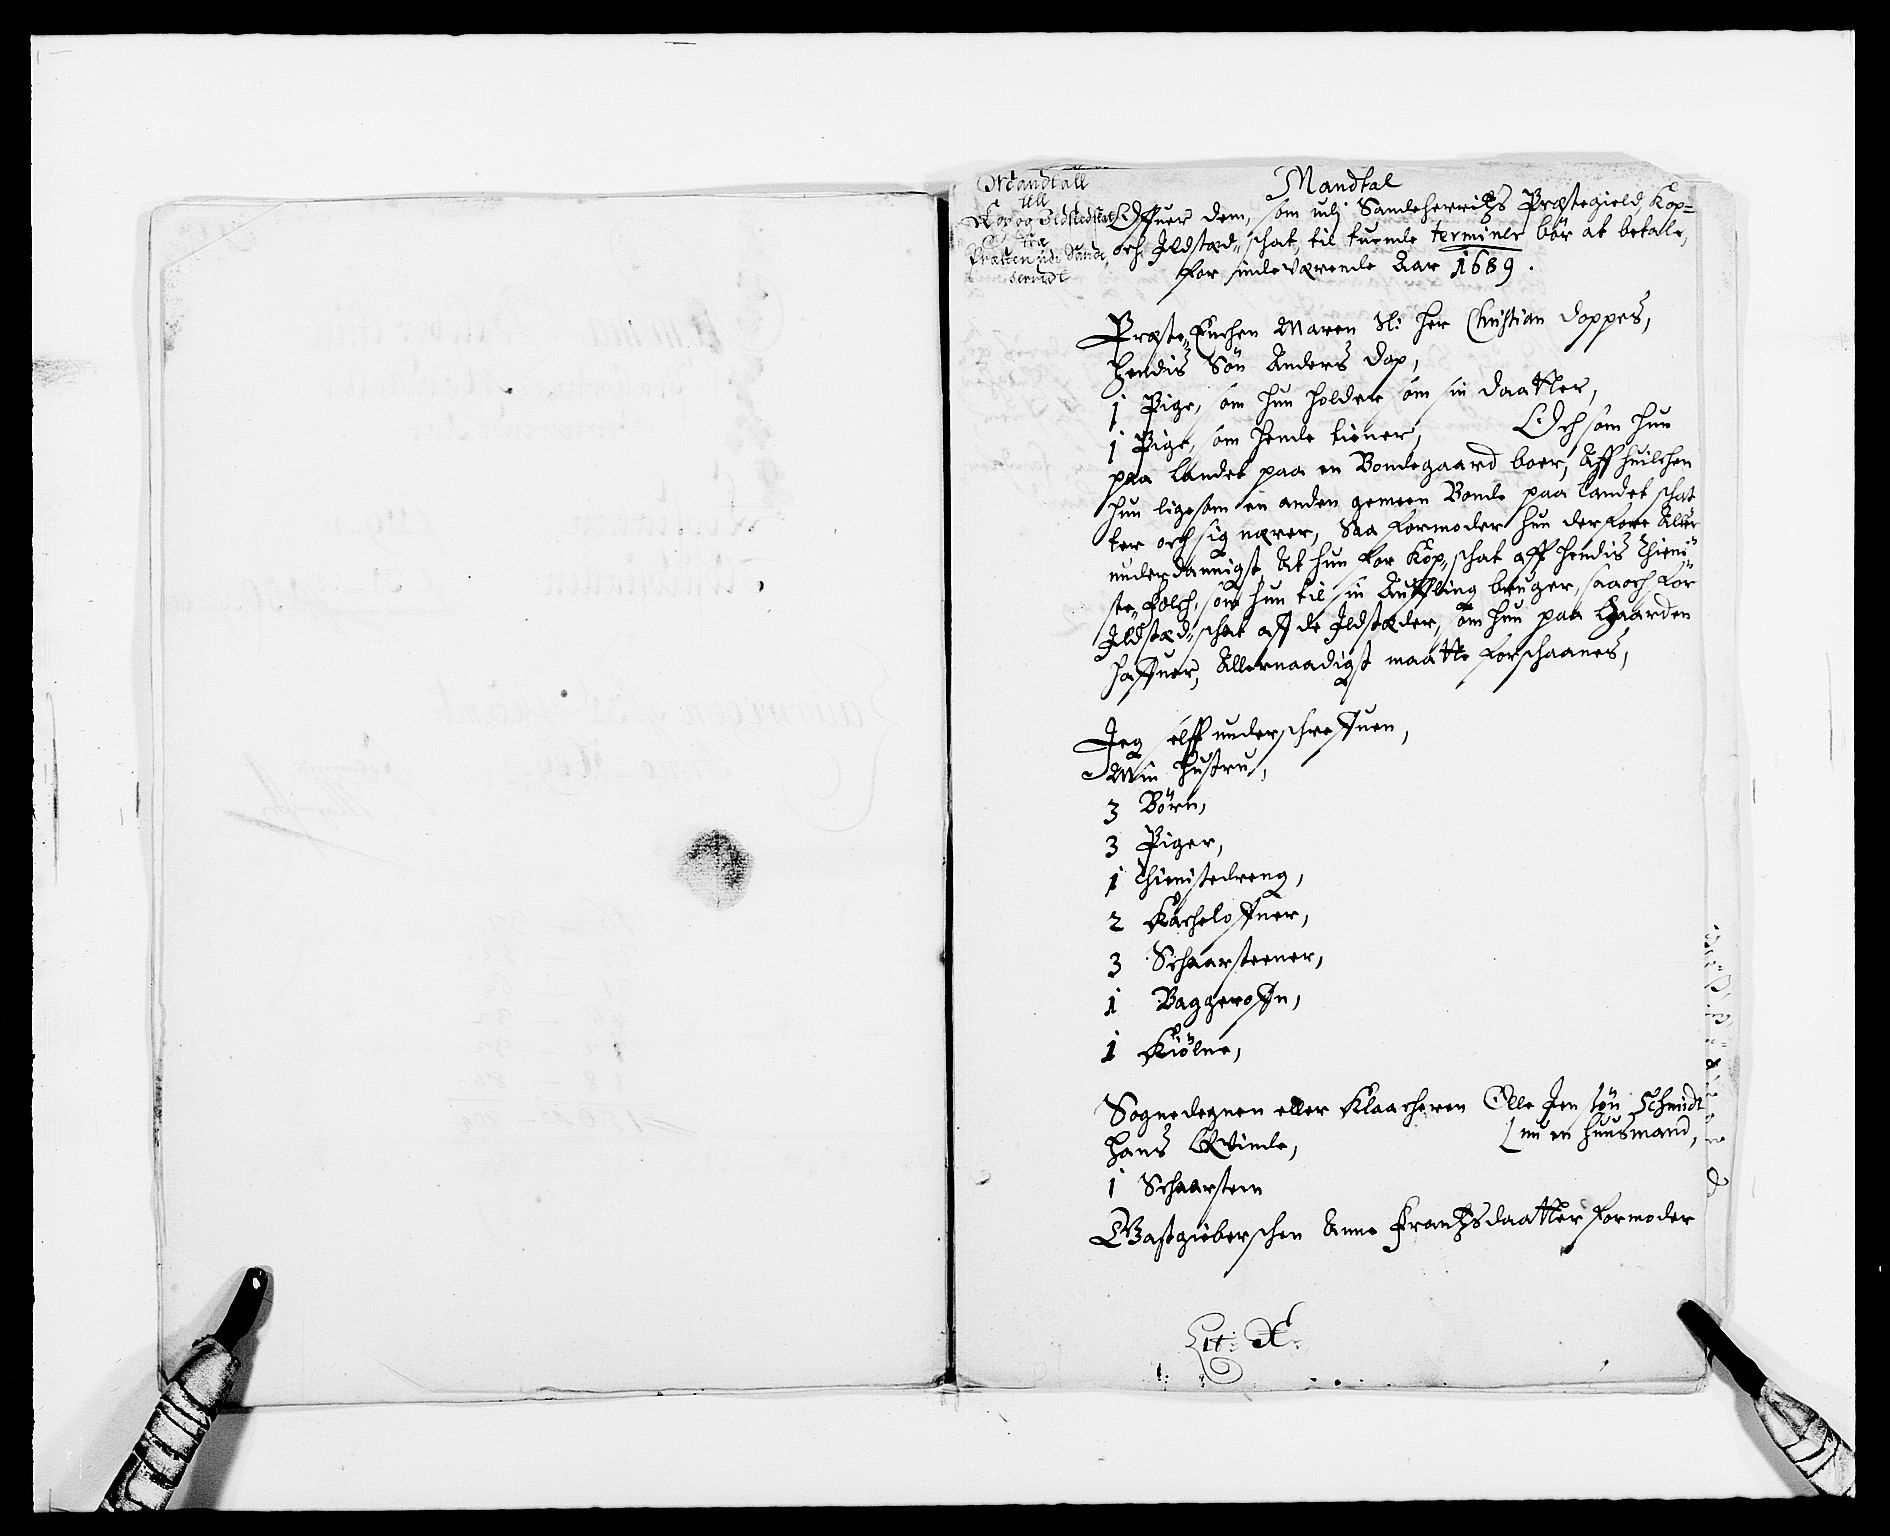 Mandtall
till
Kop og Ildstedskat
fra
Præsten udi Sande,
herridt
Mandtal
Offuer dem, som udj Sandeherritzs Præstegield Kop-
och Ildstæd-schat, til tuende terminer bör at betale,
for indeværende Aar 1689.
Præste-Enchen Maren Sl: Her Christian Doppes,
Hendis Sön Anders Dop,
1 Pige, som hun holder som sin daatter,
1 Pige, som hende tiener, Och som hun
paa landet paa en Bondegaard boer, Aff huilchen
hun ligesom en anden gemeen Bonde paa landet schat
ter och sig nærer, Saa formoder hun derfore Aller
underdannigst, At hun for Kop-schat aff hendis Thieni
ste-folch, som hun til sin Auffling bruger, saaoch for
Ildstæd-schat aff de Ildstæder, som hun paa Gaarden
haffuer, Allernaadigst maatte forschaanes,
Jeg self underschreffuen,
Min Hustru,
3 Börn,
3 Piger,
1 Thienistedreng,
2 Kacheloffner,
3 Schaarsteener,
1 Baggeroffn,
1 Kiölne,
Sognedegnen eller Klaacheren Olle Jensön Schmidt
Hans Qvinde, nu en huusmand,
1 Schaarsteen
Gastgieberschen Anne Frantzsdaatter formoder
Lit: X: